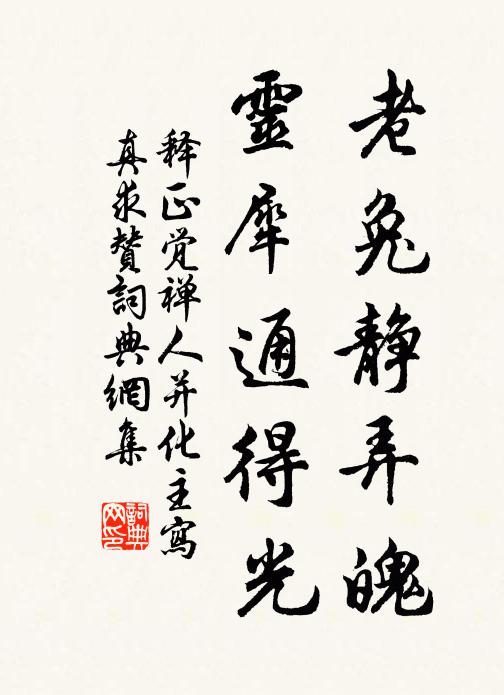 老兔静弄魄
靈犀通得光
释正觉禅人并化主寫
真求賛詞典網集
詞典
网印